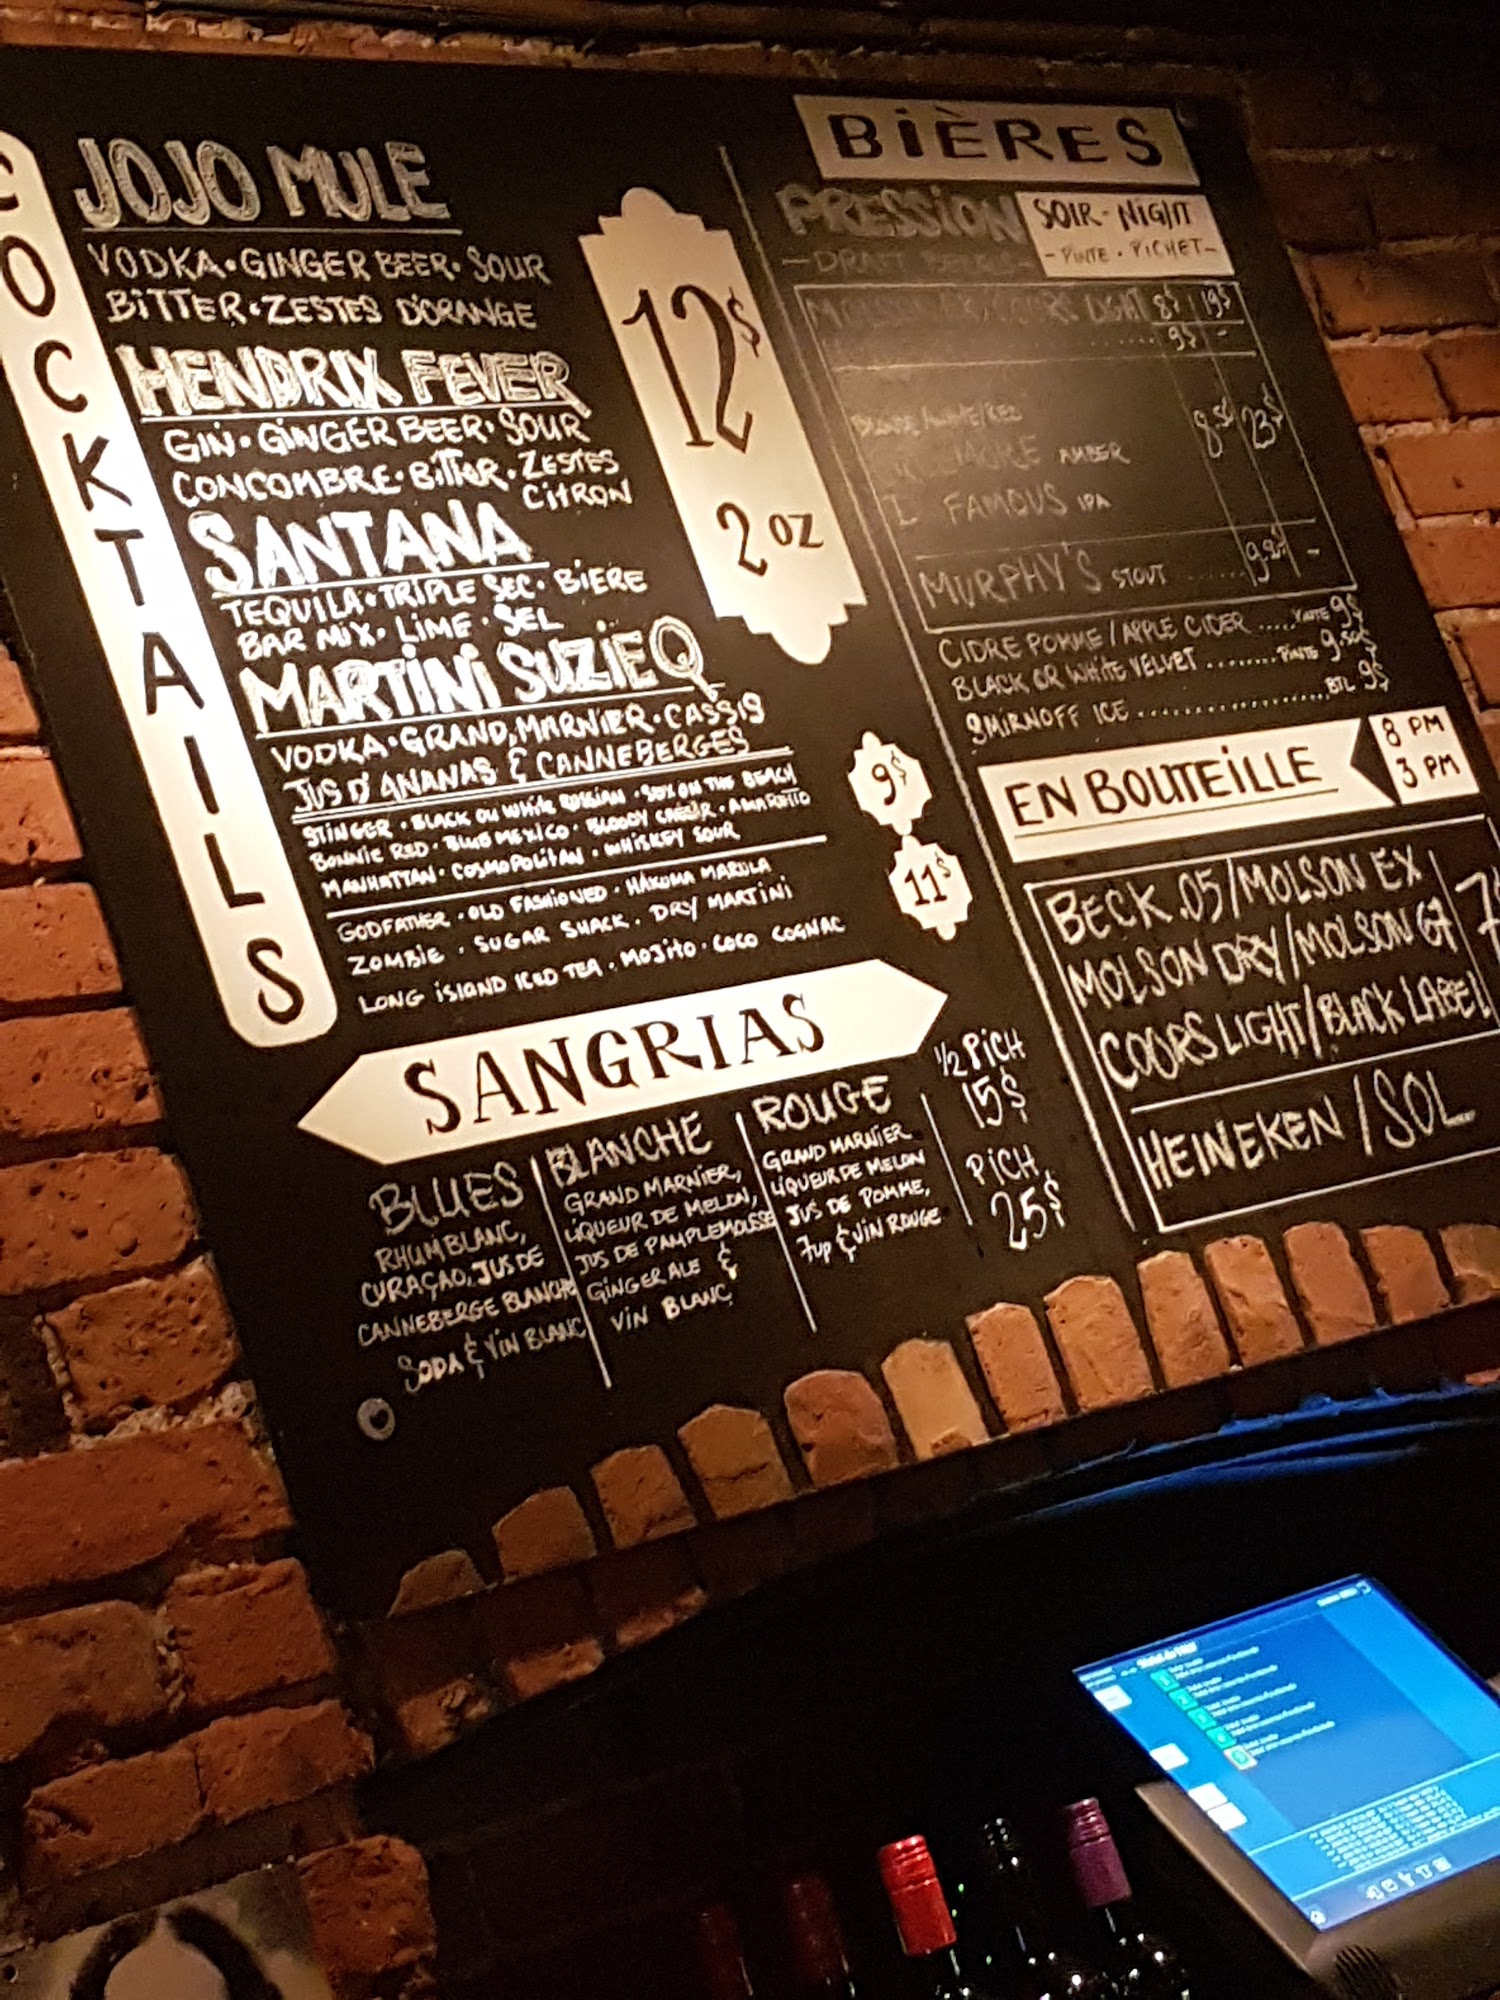 COCKTAILS
JOJO MULE
VODKA • GINGER BEER • SOUR
BITTER • ZESTES D'ORANGE
HENDRIX FEVER
GIN • GINGER BEER • SOUR
CONCOMBRE • BITTER • ZESTES
CITRON
SANTANA
TEQUILA • TRIPLE SEC • BIERE
BAR MIX • LIME • SEL
MARTINI SUZIE Q
VODKA • GRAND MARNIER • CASSIS
JUS D'ANANAS & CANNEBERGES
12$
2 OZ
STINGER • BLACK OU WHITE RUSSIAN • SEX ON THE BEACH
BONNIE RED • BLUE MEXICO • BLOODY CAESR • AMARETTO
MANHATTAN • COSMOPOLITAN • WHISKEY SOUR
9$
GODFATHER • OLD FASHIONED • HAKUMA MARULA
ZOMBIE • SUGAR SHACK • DRY MARTINI
LONG ISLAND ICED TEA • MOJITO • COCO COGNAC
11$
SANGRIAS
BLUES
RHUM BLANC,
CURAÇAO, JUS DE
CANNEBERGE BLANCHE
SODA & VIN BLANC
BLANCHE
GRAND MARNIER,
LIQUEUR DE MELON,
JUS DE PAMPLEMOUSSE
GINGER ALE &
VIN BLANC
ROUGE
GRAND MARNIER
LIQUEUR DE MELON
JUS DE POMME,
7UP & VIN ROUGE
1/2 PICH
15$
PICH
25$
BIÈRES
PRESSION
SOIR - NIGHT
- PINTE • PICHET -
- DRAFT
COORS LIGHT 8$ 19$
9$ -
AMBER 8.50 23$
FAMOUS IPA
MURPHY'S STOUT -
CIDRE POMME / APPLE CIDER ..... PINTE 9$
BLACK OR WHITE VELVET ........ PINTE 9.50$
SMIRNOFF ICE .................. BTL 9$
EN BOUTEILLE
8 PM
3 PM
BECK .05 / MOLSON EX
MOLSON DRY / MOLSON 67
COORS LIGHT / BLACK LABEL
HEINEKEN / SOL